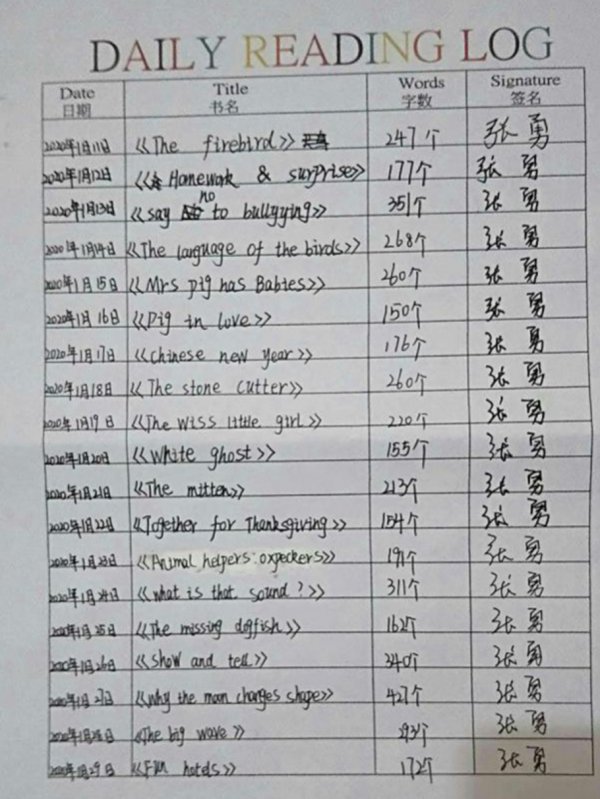 DAILY READING LOG
Date Title Words Signature
日期 书名 字数 签名
2020年1月11日 《The firebird》 247个 张勇
2020年1月12日 《Homework & surprise》 177个 张勇
2020年1月13日 《say no to bullgying》 351个 张勇
2020年1月14日 《The language of the birds》 268个 张勇
2020年1月15日 《Mrs pig has Babies》 260个 张勇
2020年1月16日 《Pig in love》 150个 张勇
2020年1月17日 《chinese new year》 176个 张勇
2020年1月18日 《The stone cutter》 260个 张勇
2020年1月19日 《The wiss little girl》 220个 张勇
2020年1月20日 《White ghost》 155个 张勇
2020年1月21日 《The mitten》 213个 张勇
2020年1月22日 《Together for Thanksgiving》 154个 张勇
2020年1月23日 《Animal helpers: oxpeckers》 191个 张勇
2020年1月24日 《what is that sound?》 311个 张勇
2020年1月25日 《The missing dogfish》 162个 张勇
2020年1月26日 《show and tell》 340个 张勇
2020年1月27日 《why the moon changes shape》 427个 张勇
2020年1月28日 《The big wave》 293个 张勇
2020年1月29日 《Fun hotels》 172个 张勇